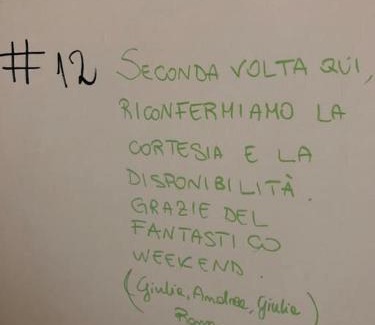 #12 SECONDA VOLTA QUI,
RICONFERMIAMO LA
CORTESIA E LA
DISPONIBILITÀ.
GRAZIE DEL
FANTASTICO
WEEKEND.
(Giulia, Andrea, Giulia)